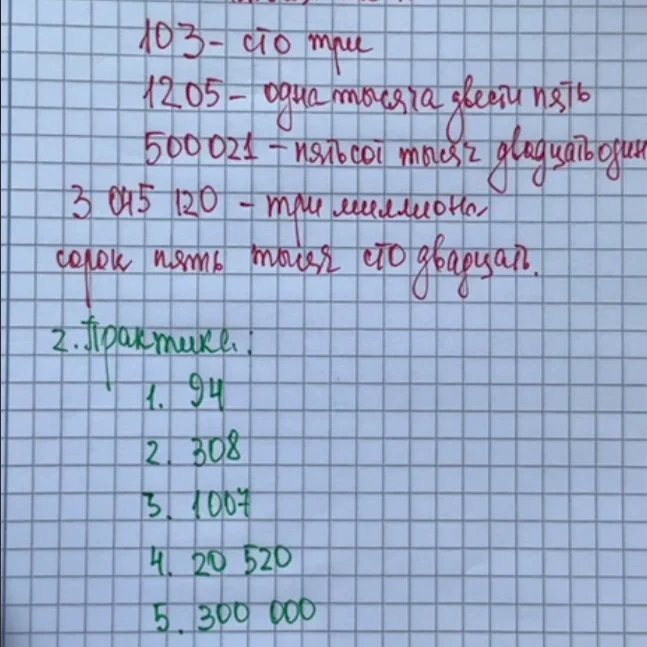 103 - сто три
1205 - одна тысяча двести пять
500 021 - пятьсот тысяч двадцать один
3 045 120 - три миллиона
сорок пять тысяч сто двадцать.
2. Практика:
1. 94
2. 308
3. 1007
4. 20 520
5. 300 000